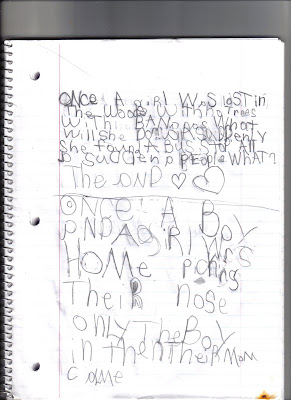 ONCE A girl WAS lOST in
The WOODS Withthg Trees
WiThi BANanas What
Will she DO
She found A BUSS TO All
SUDDEN PEOPLE WHAT?
The eND ♡ ♡
ONCE A BOy
AND A giRl BOy
HOMe WAS
Piking
TheiR NOSe
ONly The Boy
in Then TheiR MOM
CAMe